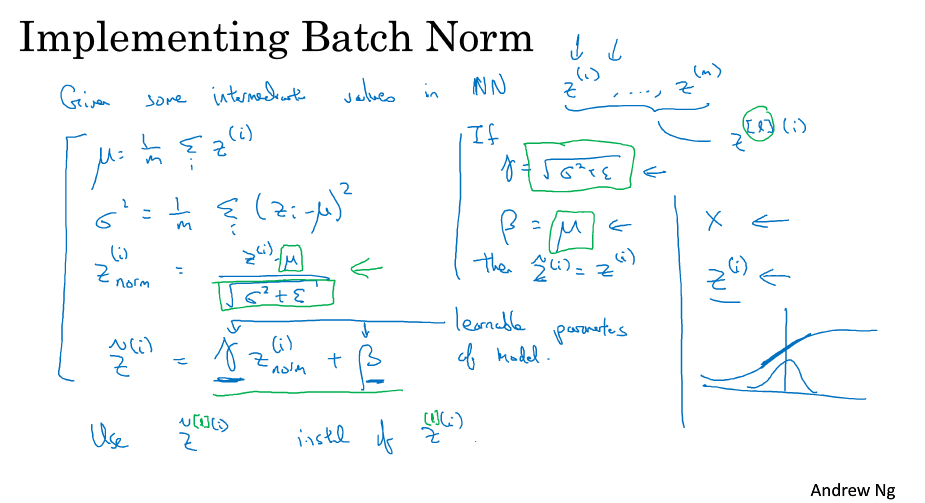 Implementing Batch Norm
Given some intermediate values in NN z^(i), ..., z^(m)
z^[l](i)
μ = 1/m Σ_i z^(i)
σ² = 1/m Σ_i (z_i - μ)²
z^(i)_norm = (z^(i) - μ) / √(σ² + ε)
z̃^(i) = γ z^(i)_norm + β
learnable parameters
of model.
If
γ = √(σ² + ε) ←
β = μ ←
then z̃^(i) = z^(i)
X ←
z^(i) ←
Use z̃^[l](i) instead of z^[l](i).
Andrew Ng